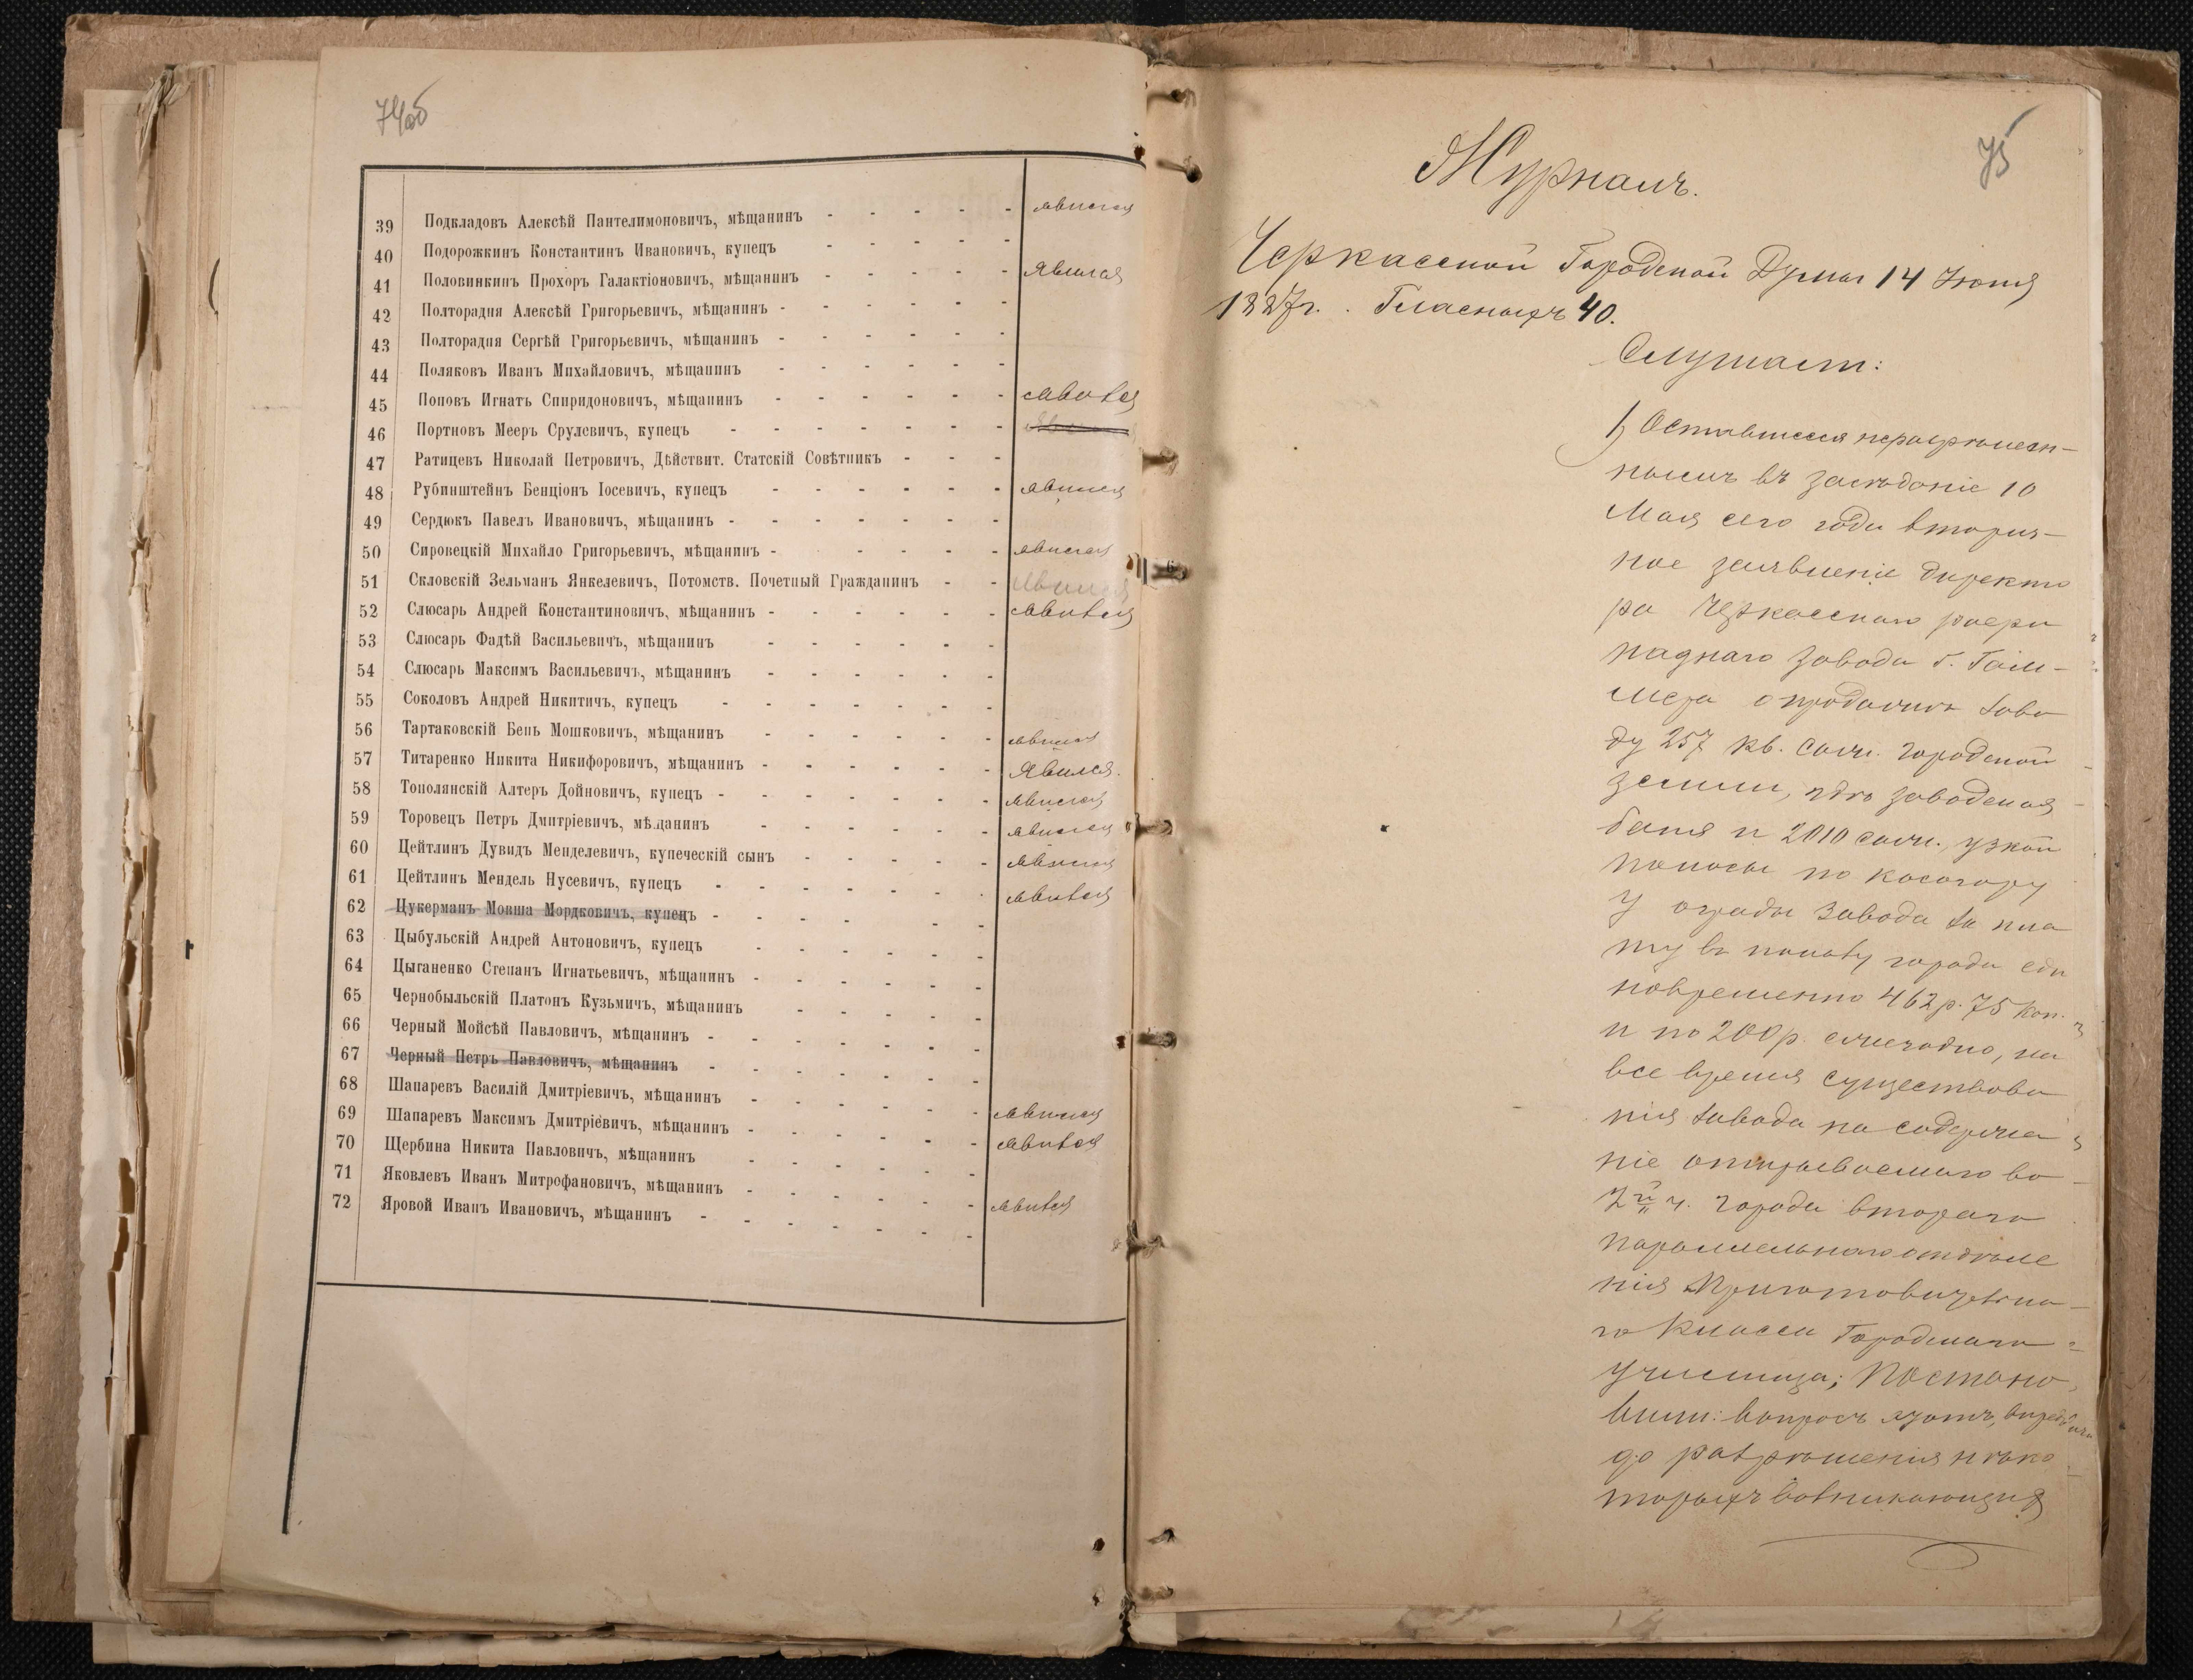 74об
39 Подкладовъ Алексѣй Пантелимоновичъ, мѣщанинъ - - - - - явился
40 Подорожкинъ Константинъ Ивановичъ, купецъ - - - - -
41 Половинкинъ Прохоръ Галактіоновичъ, мѣщанинъ - - - - - явился
42 Полторадня Алексѣй Григорьевичъ, мѣщанинъ - - - - - -
43 Полторадня Сергѣй Григорьевичъ, мѣщанинъ - - - - - -
44 Поляковъ Иванъ Михайловичъ, мѣщанинъ - - - - - -
45 Поповъ Игнатъ Спиридоновичъ, мѣщанинъ - - - - - - явился
46 Портновъ Мееръ Срулевичъ, купецъ - - - - - - -
47 Ратицевъ Николай Петровичъ, Дѣйствит. Статскій Совѣтникъ - - -
48 Рубинштейнъ Бенціонъ Іосевичъ, купецъ - - - - - - явился
49 Сердюкъ Павелъ Ивановичъ, мѣщанинъ - - - - - - -
50 Сировецкій Михайло Григорьевичъ, мѣщанинъ - - - - - явился
51 Скловскій Зельманъ Янкелевичъ, Потомств. Почетный Гражданинъ - - явился
52 Слюсарь Андрей Константиновичъ, мѣщанинъ - - - - - - явился
53 Слюсарь Фадѣй Васильевичъ, мѣщанинъ - - - - - -
54 Слюсарь Максимъ Васильевичъ, мѣщанинъ - - - - - -
55 Соколовъ Андрей Никитичъ, купецъ - - - - - - -
56 Тартаковскій Бень Мошковичъ, мѣщанинъ - - - - - - явился
57 Титаренко Никита Никифоровичъ, мѣщанинъ - - - - - - Явился.
58 Тополянскій Алтеръ Дойновичъ, купецъ - - - - - - - явился
59 Торовецъ Петръ Дмитріевичъ, мѣщанинъ - - - - - - явился
60 Цейтлинъ Дувидъ Менделевичъ, купеческій сынъ - - - - - явился
61 Цейтлинъ Мендель Нусевичъ, купецъ - - - - - - - явился
62 Цукерманъ Мовша Мордковичъ, купецъ - - - - - -
63 Цыбульскій Андрей Антоновичъ, купецъ - - - - - -
64 Цыганенко Степанъ Игнатьевичъ, мѣщанинъ - - - - - -
65 Чернобыльскій Платонъ Кузьмичъ, мѣщанинъ - - - - - -
66 Черный Мойсѣй Павловичъ, мѣщанинъ - - - - - - -
67 Черный Петръ Павловичъ, мѣщанинъ - - - - - - -
68 Шапаревъ Василій Дмитріевичъ, мѣщанинъ - - - - - - явился
69 Шапаревъ Максимъ Дмитріевичъ, мѣщанинъ - - - - - - явился
70 Щербина Никита Павловичъ, мѣщанинъ - - - - - -
71 Яковлевъ Иванъ Митрофановичъ, мѣщанинъ - - - - - - явился
72 Яровой Иванъ Ивановичъ, мѣщанинъ - - - - - - -
75
Журналъ.
Черкасской Городской Думы 14 Іюня
1887г. Гласныхъ 40.
Слушали:
1) Оставшееся неразрѣшен-
нымъ въ засѣданіе 10
Мая сего года вторич-
ное заявленіе директо
ра Черкасскаго рафи
наднаго завода г. Гам-
мера о продажѣ заво
ду 257 кв. саж. городской
земли, гдѣ заводская
баня и 2010 саж., узкой
полосы по косогору
у ограды завода за пла
ту въ пользу города еди
новременно 462р. 75 коп.
и по 200р. ежегодно, на
все время существова
нія завода на содержа
ніе открываемаго во
2й ч. города втораго
параллельнаго отдѣле
нія Приготовительна-
го класса Городскаго
Училища; Постано
вили: вопросъ этотъ,
до разрѣшенія нѣко
торыхъ возникающихъ